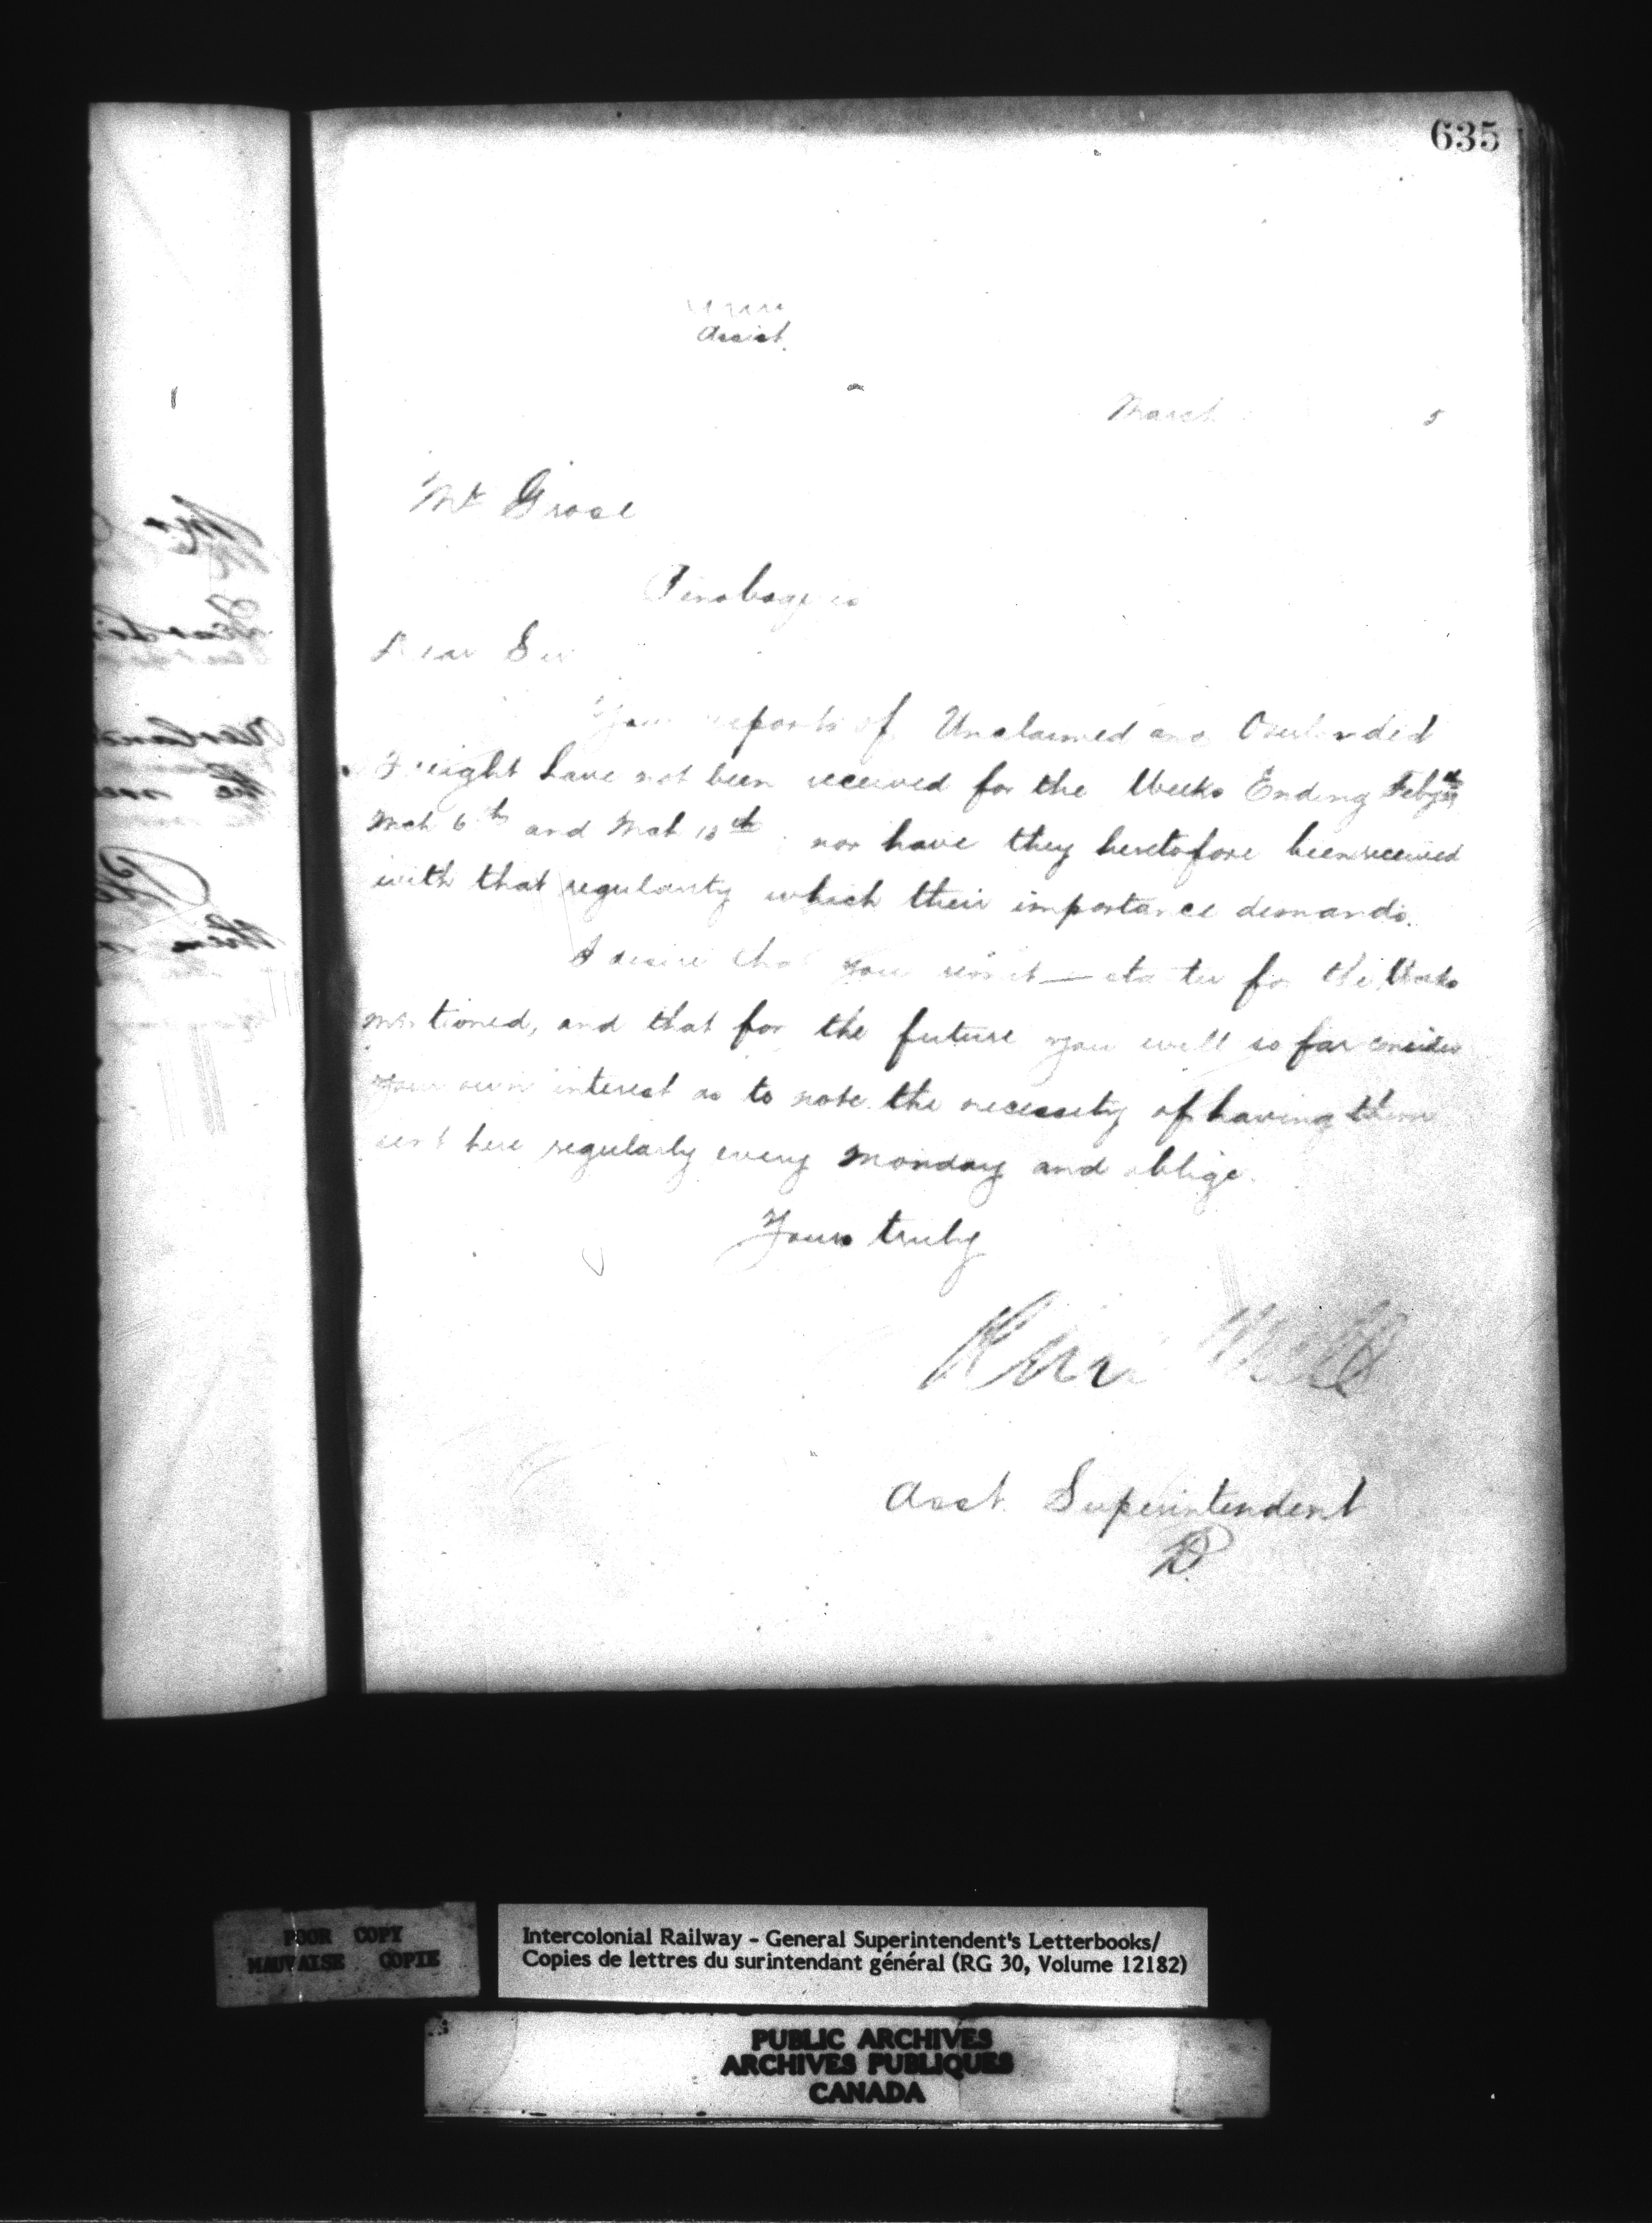 635
Assist.
March 5
Mr
Dear Sir
Your reports of Unclaimed and
Freight have not been received for the Weeks Ending Feby
Mch 6th and Mch 13th nor have they heretofore been received
with that regularity which their importance demands.
I desire that you for the Weeks
mentioned, and that for the future you will so far consider
your own interest as to note the necessity of having them
sent here regularly every Monday and oblige.
Yours truly
Asst. Superintendent
D
POOR COPY
MAUVAISE COPIE
Intercolonial Railway - General Superintendent's Letterbooks/
Copies de lettres du surintendant général (RG 30, Volume 12182)
PUBLIC ARCHIVES
ARCHIVES PUBLIQUES
CANADA